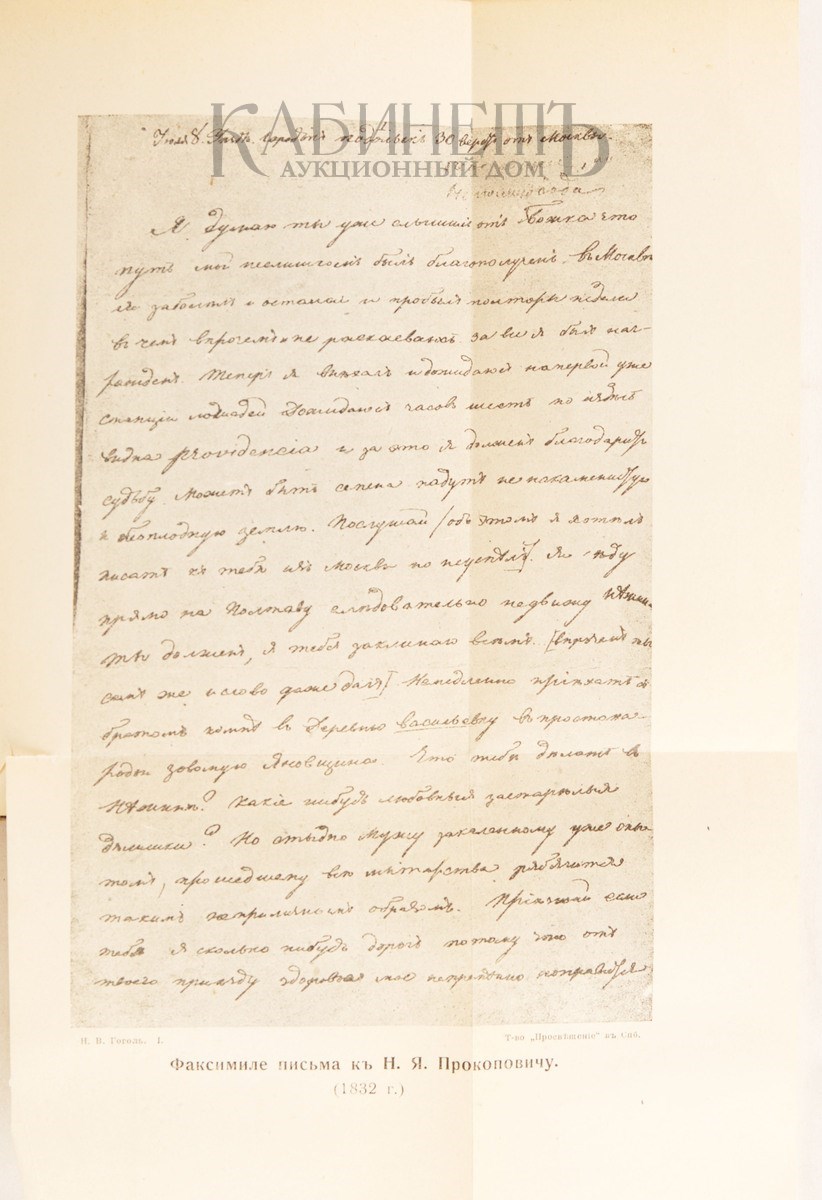 КАБИНЕТЪ
АУКЦИОННЫЙ ДОМ
Іюля 8. городъ Подольскъ 30 верстъ отъ Москвы.
Я думаю ты уже слышилъ отъ Божка что
путь мой былъ благополученъ. въ Москвѣ
я заболѣлъ и остался и пробылъ полторы недѣли
въ чемъ впрочемъ и не раскаеваюсь за все я былъ наг-
ражденъ. Теперь я выѣхалъ и дожидаюсь на первой уже
станціи лошадей Дожидаюсь часовъ шесть но
видна providencia и за это я долженъ благодарить
судьбу. Можетъ быть семена падутъ не на каменистую
и безплодную землю. Послушай /объ этомъ я хотѣлъ
писать къ тебѣ изъ Москвы но неуспѣлъ/. Я ѣду
прямо на Полтаву слѣдовательно не увижу Нѣжина.
Ты долженъ, я тебя заклинаю всѣмъ. [впрочемъ ты
самъ же и слово даже далъ] Немедленно пріѣхать съ
братомъ комнѣ въ Деревню Васильевку въ простона-
родьи зовомую Яновщина. Что тебѣ дѣлать въ
Нѣжинѣ? Какіе нибудь любовныя застарѣлыя
дѣлишки? Но стыдно Мужу закаленному уже опы-
томъ, прошедшему всѣ мытарства ребячиться
такимъ неприличнымъ образомъ. Пріѣзжай если
тебѣ я сколько нибудь дорогъ потому что отъ
твоего приѣзду здоровье мое непремѣнно поправится
Н. В. Гоголь. I.
Т-во „Просвѣщеніе“ въ Спб.
Факсимиле письма къ Н. Я. Прокоповичу.
(1832 г.)